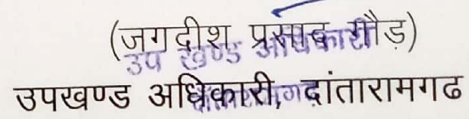 (जगदीश प्रसाद गौड़)
उप खण्ड अधिकारी
उपखण्ड अधिकारी, दांतारामगढ